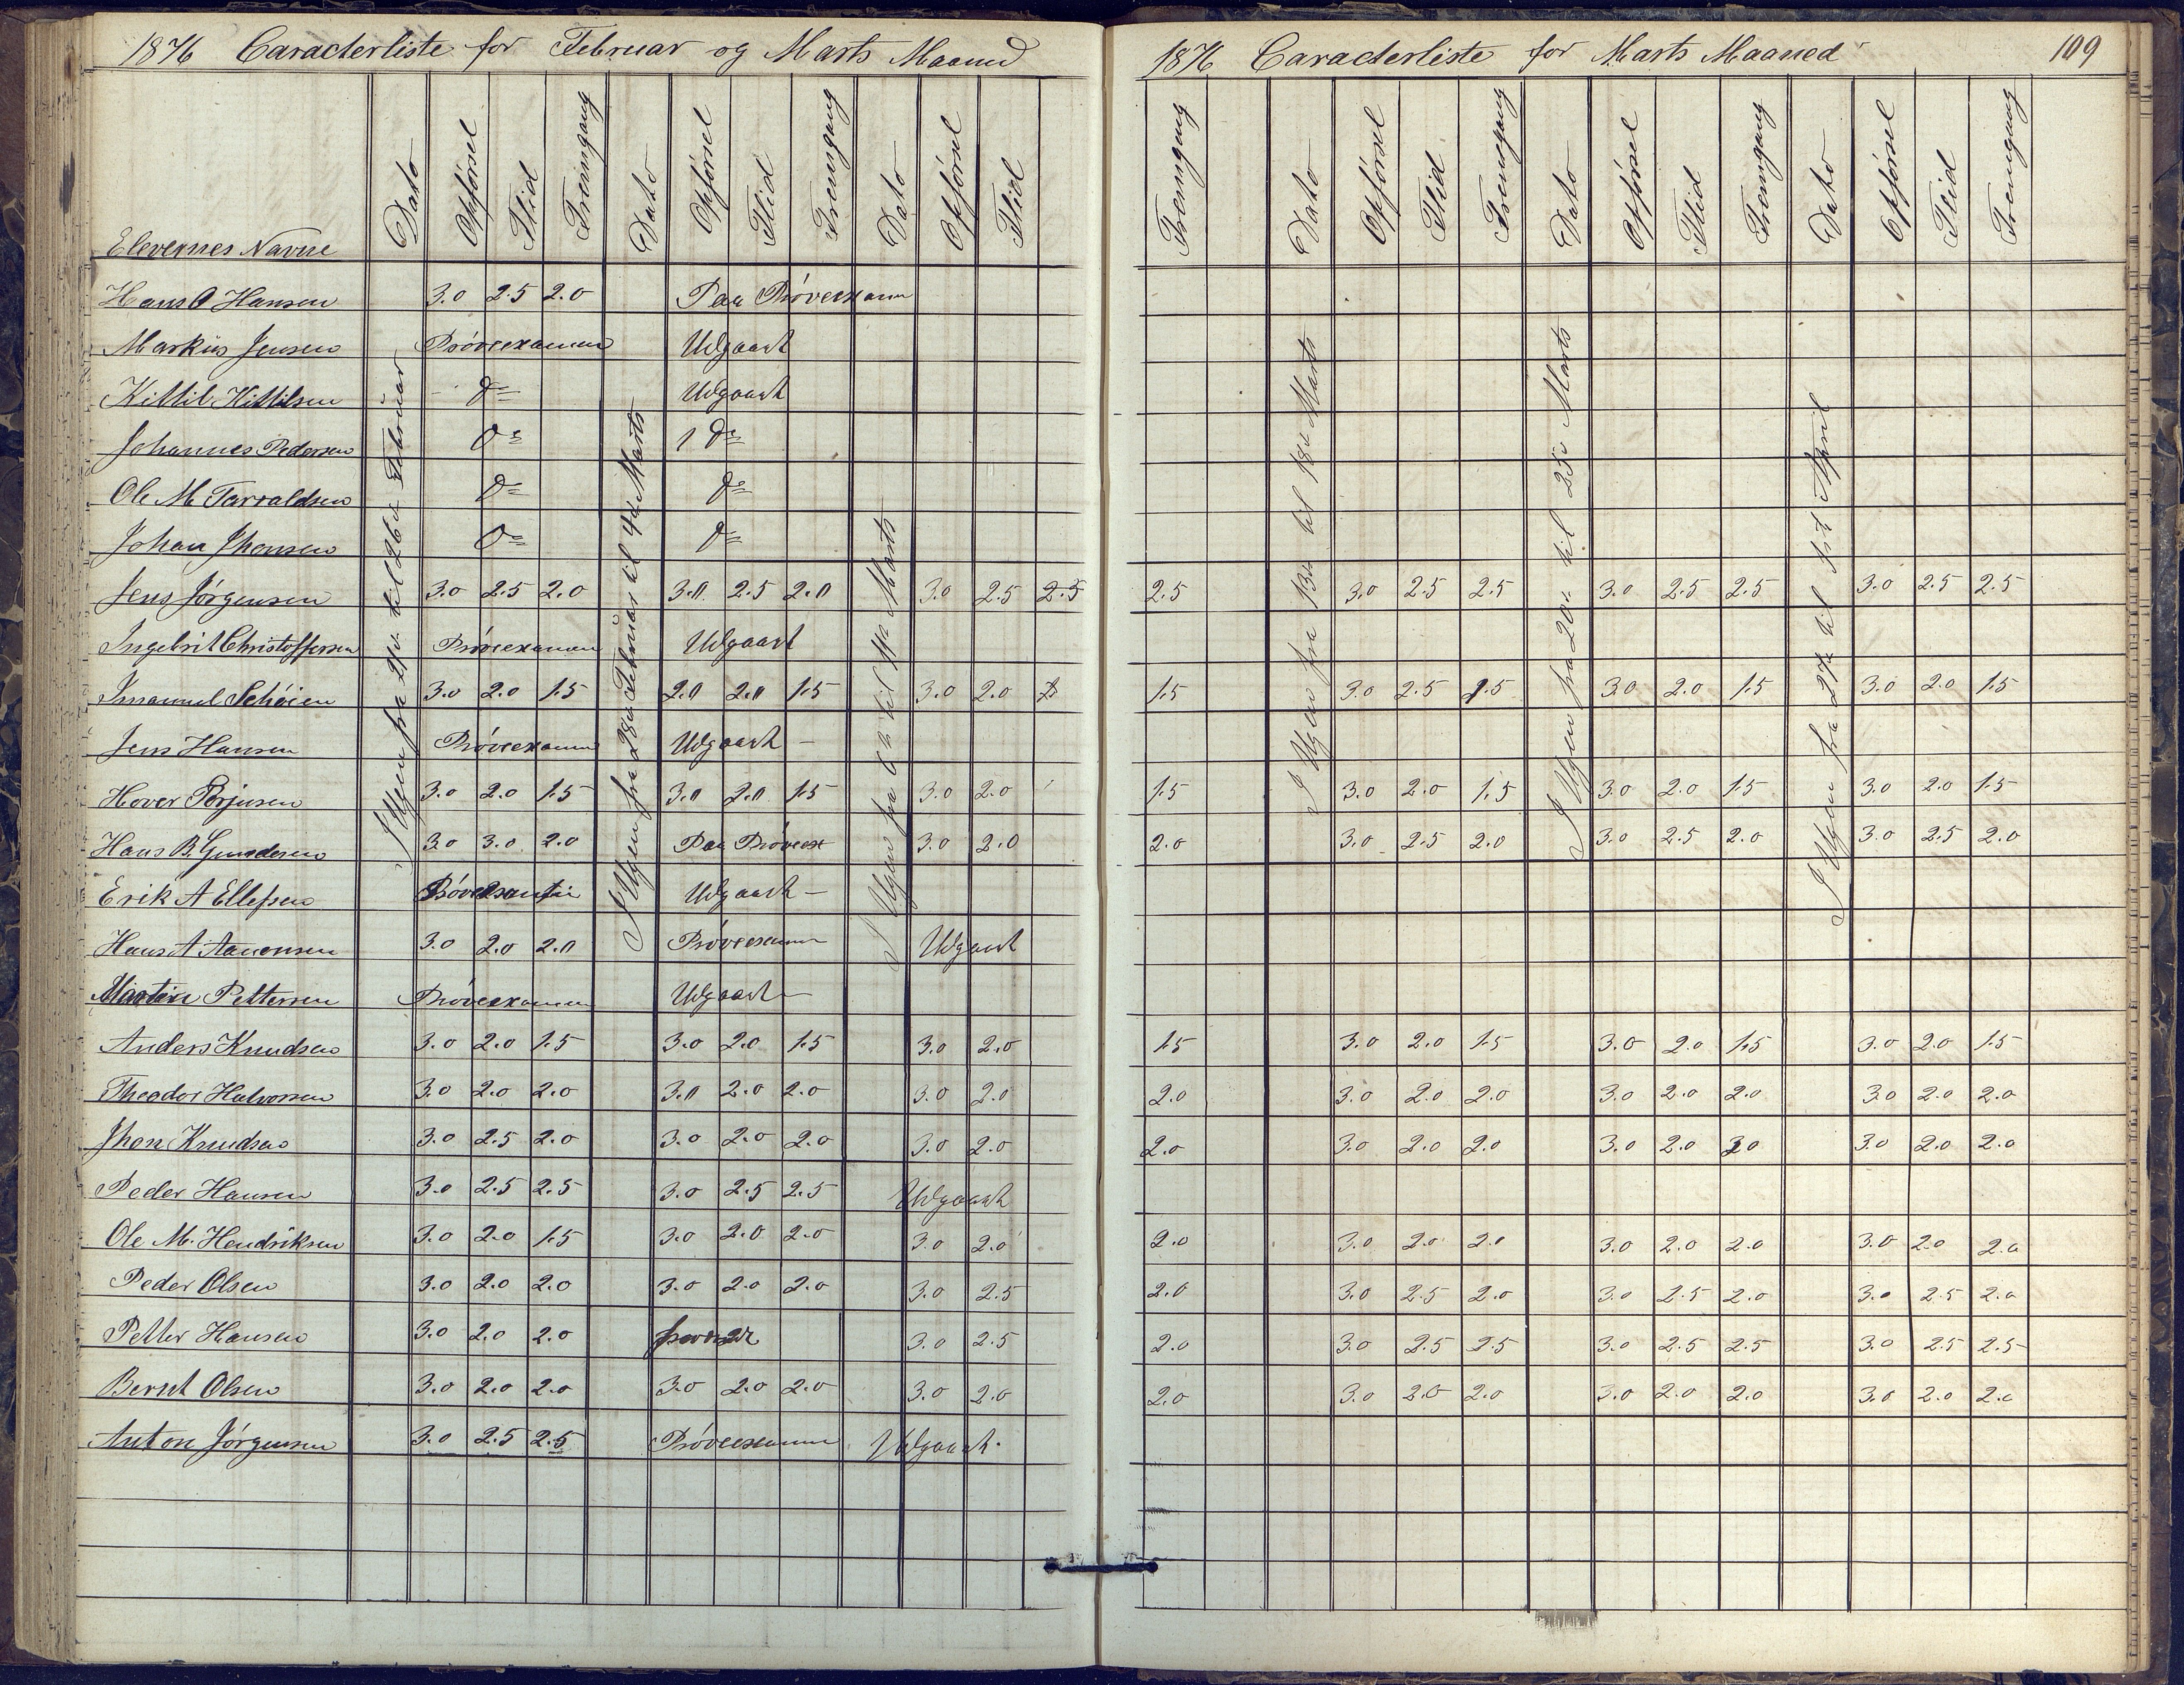 1876 Caracterliste for Februar og Marts Maaned
Elevernes Navne Dato Opførsel Flid Fremgang Dato Opførsel Flid Fremgang Dato Opførsel Flid
I Ugen fra 21de til 26de Februar
I Ugen fra 28de Februar til 4de Marts
I Ugen fra 6te til 11te Marts
Hans O Hansen 3.0 2.5 2.0 Paa Prøveexamn
Markus Jensen Prøveexamen Udgaaet
Kittil Kittilsen do Udgaaet
Johannes Pedersen do do
Ole M Tarraldsen do do
Johan Jhonsen do do
Jens Jørgensen 3.0 2.5 2.0 3.0 2.5 2.0 3.0 2.5 2.5
Ingebrit Christoffersen Prøveexamen Udgaaet
Imanuel Schøien 3.0 2.0 1.5 2.0 2.0 1.5 3.0 2.0
Jens Hansen Prøveexamen Udgaaet –
Hover Torjusen 3.0 2.0 1.5 3.0 2.0 1.5 3.0 2.0
Hans B. Gundersen 3.0 3.0 2.0 Paa Prøveex 3.0 2.0
Erik A Ellefsen Prøveexamen Udgaaet –
Hans A Aanonsen 3.0 2.0 2.0 Prøveexamen Udgaaet
Martin Pettersen Prøveexamen Udgaaet –
Anders Knudsen 3.0 2.0 1.5 3.0 2.0 1.5 3.0 2.0
Theodor Halvorsen 3.0 2.0 2.0 3.0 2.0 2.0 3.0 2.0
Jhon Knudsen 3.0 2.5 2.0 3.0 2.0 2.0 3.0 2.0
Peder Hansen 3.0 2.5 2.5 3.0 2.5 2.5 Udgaaet
Ole M. Hendriksen 3.0 2.0 1.5 3.0 2.0 2.0 3.0 2.0
Peder Olsen 3.0 2.0 2.0 3.0 2.0 2.0 3.0 2.5
Petter Hansen 3.0 2.0 2.0 3.0 2.5
Bernt Olsen 3.0 2.0 2.0 3.0 2.0 2.0 3.0 2.0
Anton Jørgensen 3.0 2.5 2.5 Prøveexamen Udgaaet.
1876 Caracterliste for Marts Maaned 109
Fremgang Dato Opførsel Flid Fremgang Dato Opførsel Flid Fremgang Dato Opførsel Flid Fremgang
I Ugen fra 13de til 18de Marts
I Ugen fra 20de til 25de Marts
I Ugen fra 27de til 1ste April
2.5 3.0 2.5 2.5 3.0 2.5 2.5 3.0 2.5 2.5
1.5 3.0 2.5 1.5 3.0 2.0 1.5 3.0 2.0 1.5
1.5 3.0 2.0 1.5 3.0 2.0 1.5 3.0 2.0 1.5
2.0 3.0 2.5 2.0 3.0 2.5 2.0 3.0 2.5 2.0
1.5 3.0 2.0 1.5 3.0 2.0 1.5 3.0 2.0 1.5
2.0 3.0 2.0 2.0 3.0 2.0 2.0 3.0 2.0 2.0
2.0 3.0 2.0 2.0 3.0 2.0 2.0 3.0 2.0 2.0
2.0 3.0 2.0 2.0 3.0 2.0 2.0 3.0 2.0 2.0
2.0 3.0 2.5 2.0 3.0 2.5 2.0 3.0 2.5 2.0
2.0 3.0 2.5 2.5 3.0 2.5 2.5 3.0 2.5 2.5
2.0 3.0 2.0 2.0 3.0 2.0 2.0 3.0 2.0 2.0